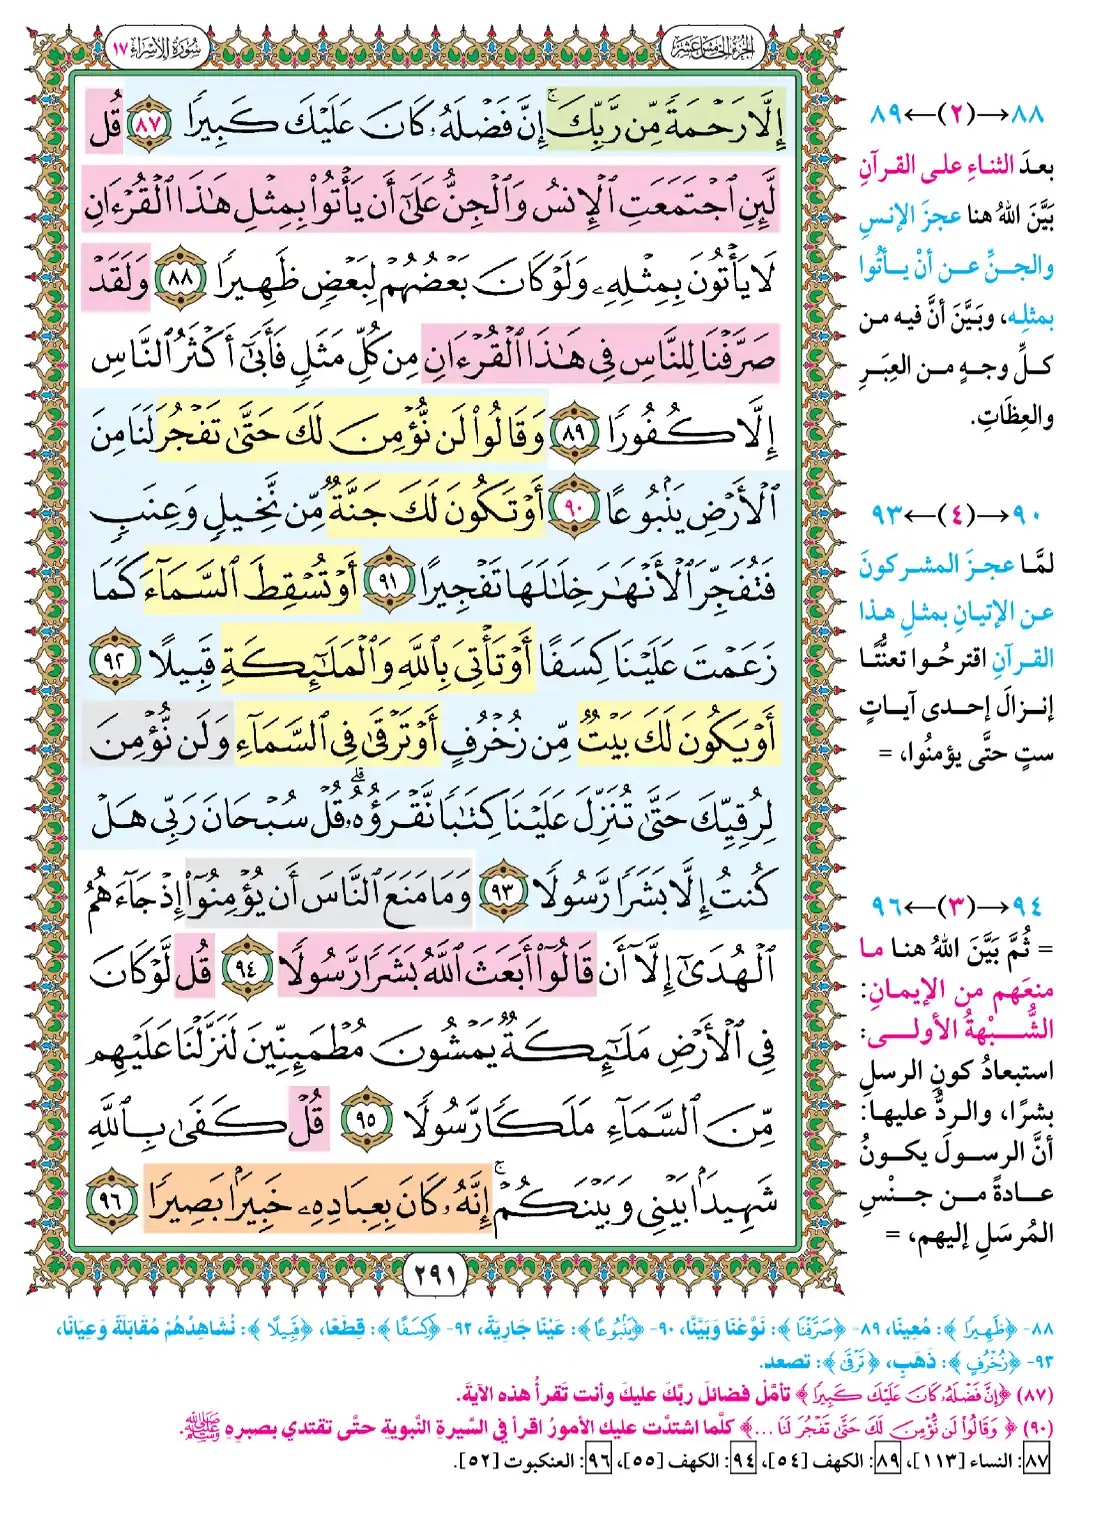 الجزء الخامس عشر
سورة الإسراء ١٧
إِلَّا رَحْمَةً مِّن رَّبِّكَ ۚ إِنَّ فَضْلَهُۥ كَانَ عَلَيْكَ كَبِيرًا ٨٧ قُل
لَّئِنِ ٱجْتَمَعَتِ ٱلْإِنسُ وَٱلْجِنُّ عَلَىٰٓ أَن يَأْتُوا۟ بِمِثْلِ هَـٰذَا ٱلْقُرْءَانِ
لَا يَأْتُونَ بِمِثْلِهِۦ وَلَوْ كَانَ بَعْضُهُمْ لِبَعْضٍ ظَهِيرًا ٨٨ وَلَقَدْ
صَرَّفْنَا لِلنَّاسِ فِى هَـٰذَا ٱلْقُرْءَانِ مِن كُلِّ مَثَلٍ فَأَبَىٰٓ أَكْثَرُ ٱلنَّاسِ
إِلَّا كُفُورًا ٨٩ وَقَالُوا۟ لَن نُّؤْمِنَ لَكَ حَتَّىٰ تَفْجُرَ لَنَا مِنَ
ٱلْأَرْضِ يَنۢبُوعًا ٩٠ أَوْ تَكُونَ لَكَ جَنَّةٌ مِّن نَّخِيلٍ وَعِنَبٍ
فَتُفَجِّرَ ٱلْأَنْهَـٰرَ خِلَـٰلَهَا تَفْجِيرًا ٩١ أَوْ تُسْقِطَ ٱلسَّمَآءَ كَمَا
زَعَمْتَ عَلَيْنَا كِسَفًا أَوْ تَأْتِىَ بِٱللَّهِ وَٱلْمَلَـٰٓئِكَةِ قَبِيلًا ٩٢
أَوْ يَكُونَ لَكَ بَيْتٌ مِّن زُخْرُفٍ أَوْ تَرْقَىٰ فِى ٱلسَّمَآءِ وَلَن نُّؤْمِنَ
لِرُقِيِّكَ حَتَّىٰ تُنَزِّلَ عَلَيْنَا كِتَـٰبًا نَّقْرَؤُهُۥ ۗ قُلْ سُبْحَانَ رَبِّى هَلْ
كُنتُ إِلَّا بَشَرًا رَّسُولًا ٩٣ وَمَا مَنَعَ ٱلنَّاسَ أَن يُؤْمِنُوٓا۟ إِذْ جَآءَهُمُ
ٱلْهُدَىٰٓ إِلَّآ أَن قَالُوٓا۟ أَبَعَثَ ٱللَّهُ بَشَرًا رَّسُولًا ٩٤ قُل لَّوْ كَانَ
فِى ٱلْأَرْضِ مَلَـٰٓئِكَةٌ يَمْشُونَ مُطْمَئِنِّينَ لَنَزَّلْنَا عَلَيْهِم
مِّنَ ٱلسَّمَآءِ مَلَكًا رَّسُولًا ٩٥ قُلْ كَفَىٰ بِٱللَّهِ
شَهِيدًۢا بَيْنِى وَبَيْنَكُمْ ۚ إِنَّهُۥ كَانَ بِعِبَادِهِۦ خَبِيرًۢا بَصِيرًا ٩٦
٢٩١
٨٨→(٢)←٨٩
بعدَ الثناءِ على القرآنِ
بَيَّنَ اللهُ هنا عجزَ الإنسِ
والجنِّ عن أنْ يأتُوا
بمثلِه، وبَيَّنَ أنَّ فيه من
كلِّ وجهٍ من العِبَرِ
والعِظَاتِ.
٩٠→(٤)←٩٣
لمَّا عجزَ المشركونَ
عن الإتيانِ بمثلِ هذا
القرآنِ اقترحُوا تعنُّتًا
إنزالَ إحدى آياتٍ
ستٍ حتَّى يؤمنُوا، =
٩٤→(٣)←٩٦
= ثُمَّ بَيَّنَ اللهُ هنا ما
منعَهم من الإيمانِ:
الشُّبْهةُ الأولى:
استبعادُ كونِ الرسلِ
بشرًا، والردُّ عليها:
أنَّ الرسولَ يكونُ
عادةً من جنْسِ
المُرسَلِ إليهم، =
٨٨- ﴿ظَهِيرًا﴾: مُعِينًا، ٨٩- ﴿صَرَّفْنَا﴾: نَوَّعْنَا وَبَيَّنَّا، ٩٠- ﴿يَنۢبُوعًا﴾: عَيْنًا جَارِيَةً، ٩٢- ﴿كِسَفًا﴾: قِطَعًا، ﴿قَبِيلًا﴾: نُشَاهِدُهُمْ مُقَابَلَةً وَعِيَانًا،
٩٣- ﴿زُخْرُفٍ﴾: ذَهَبٍ، ﴿تَرْقَىٰ﴾: تصعد.
(٨٧) ﴿إِنَّ فَضْلَهُۥ كَانَ عَلَيْكَ كَبِيرًا﴾ تأمَّل فضائلَ ربِّكَ عليكَ وأنت تَقرأُ هذه الآيةَ.
(٩٠) ﴿وَقَالُوا۟ لَن نُّؤْمِنَ لَكَ حَتَّىٰ تَفْجُرَ لَنَا ...﴾ كلَّما اشتدَّت عليك الأمورُ اقرأ في السِّيرةِ النَّبويةِ حتَّى تقتدي بصبرِه ﷺ.
٨٧: النساء [١١٣]، ٨٩: الكهف [٥٤]، ٩٤: الكهف [٥٥]، ٩٦: العنكبوت [٥٢].